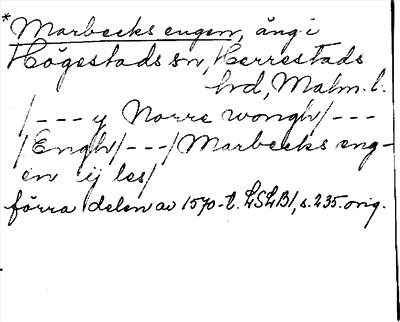 *Marbecks engen, äng i
Högestads sn, Herrestads
hd, Malm. l.
/--- y Norre wongh/---
/Engh/---/Marbecks eng-
en ij les/
förra delen av 1570-t. LSLB1, s. 235. orig.